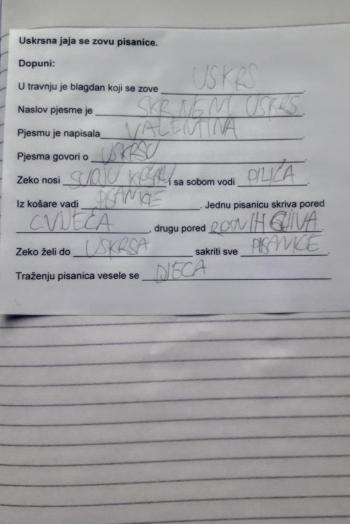 Uskrsna jaja se zovu pisanice.
Dopuni:
U travnju je blagdan koji se zove USKRS
Naslov pjesme je USKRS
Pjesmu je napisala VALENTINA
Pjesma govori o USKRSU
Zeko nosi SVOJU i sa sobom vodi PILIĆA
Iz košare vadi PISANICE. Jednu pisanicu skriva pored
CVIJEĆA, drugu pored
Zeko želi do USKRSA sakriti sve PISANICE.
Traženju pisanica vesele se DJECA